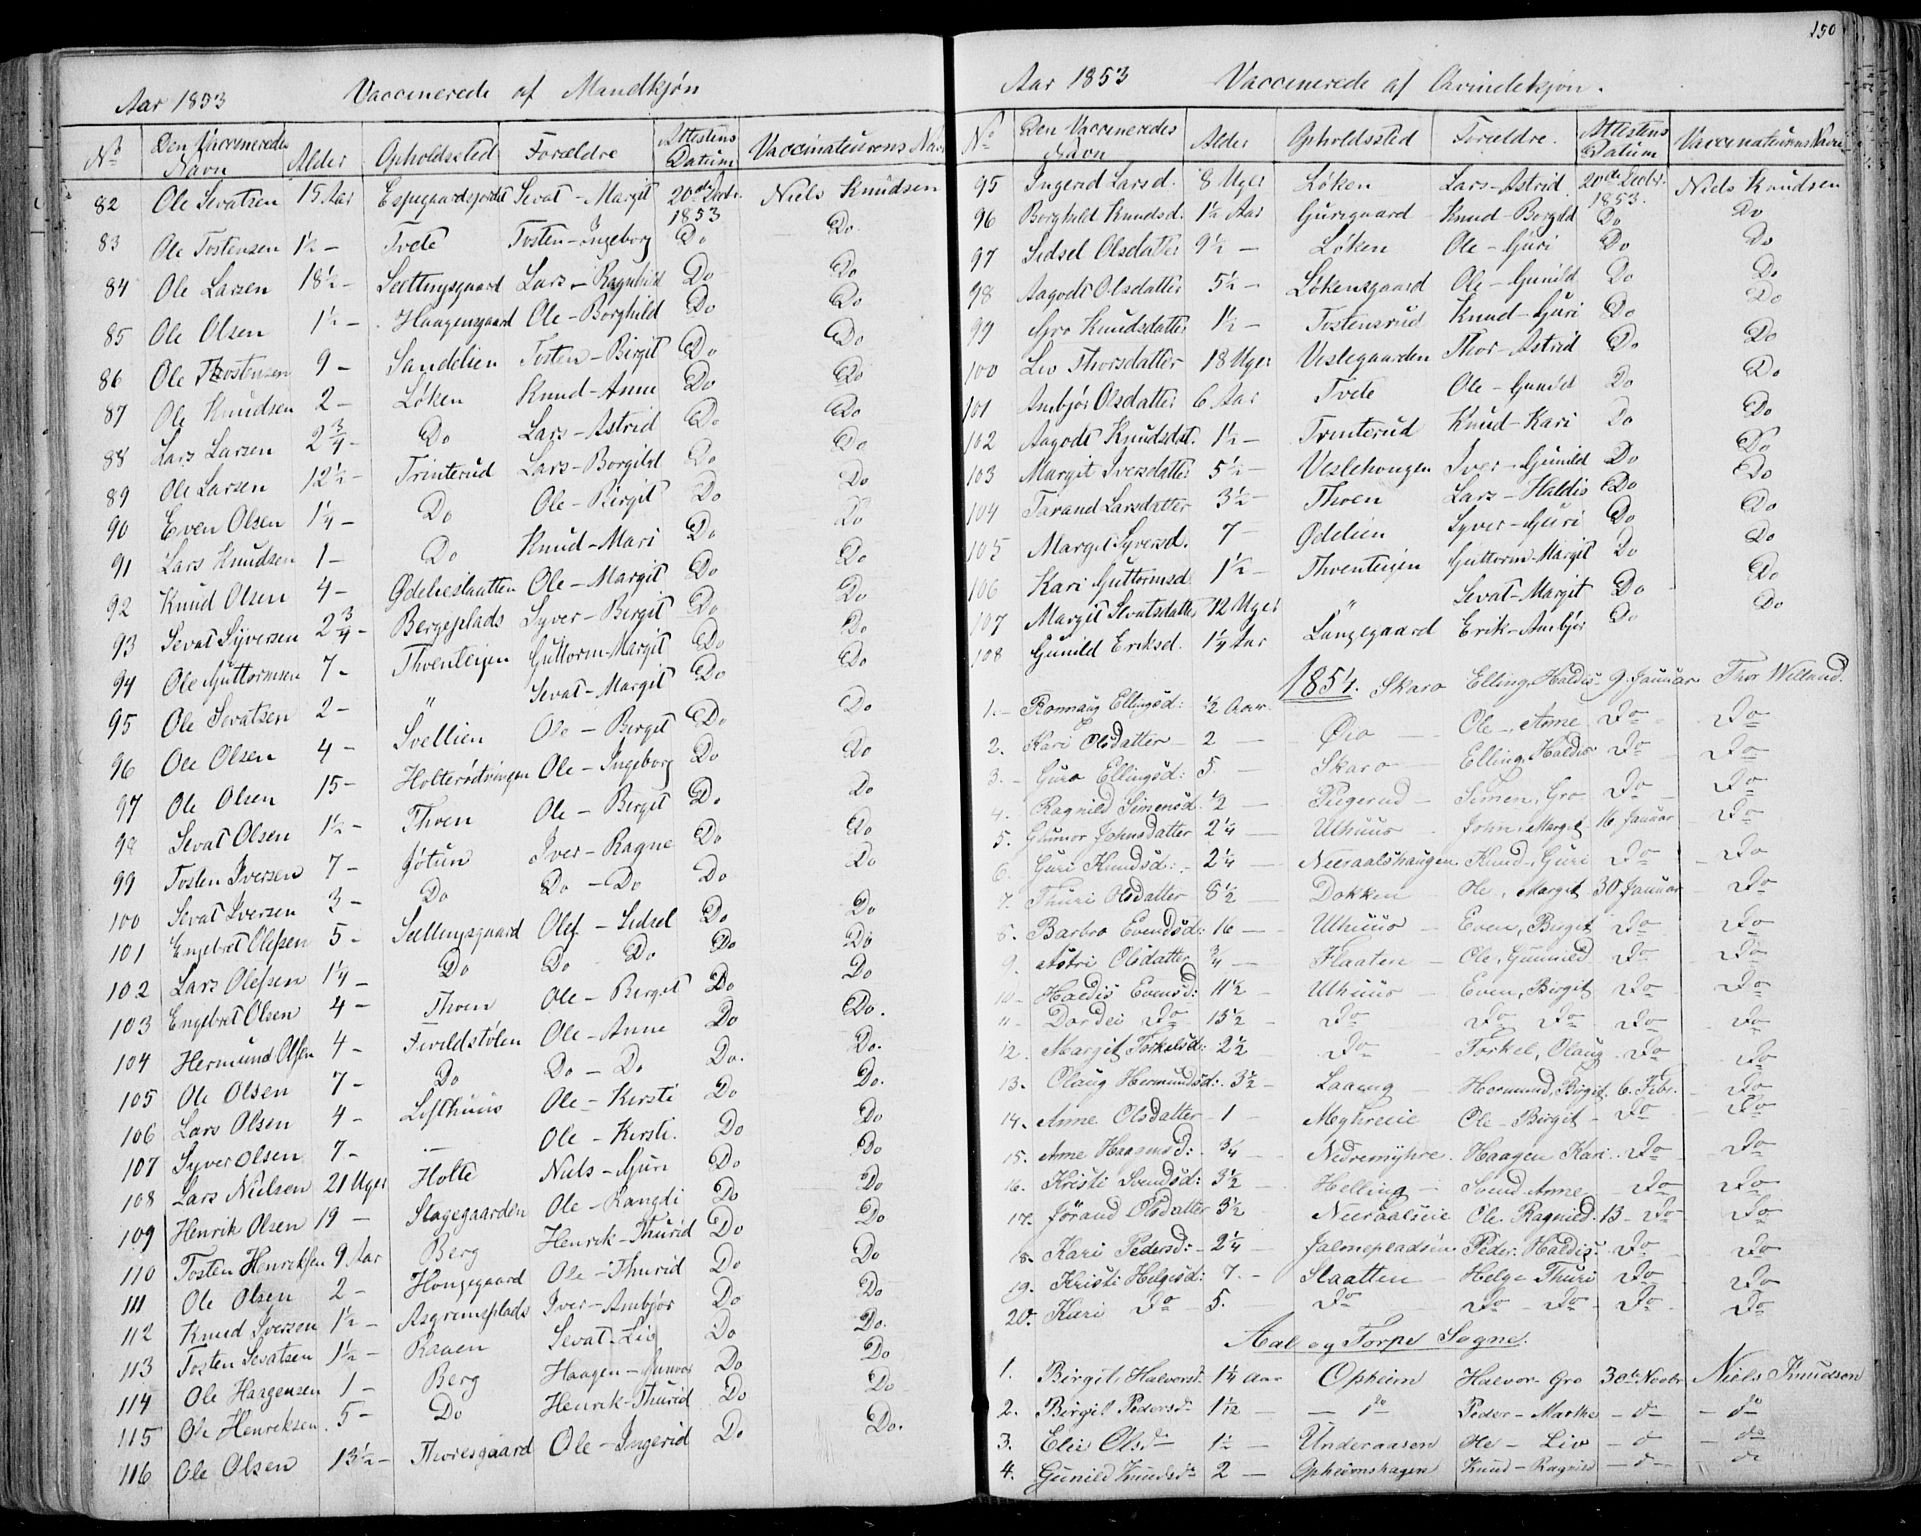 150
Aar 1853 Vaccinerede af Mandkjøn
No Den Vaccineredes Navn Alder Opholdssted Forældre Attestens Datum Vaccinateurens Navn
82 Ole Sevatsen 15 Aar Espegaardsjordet Sevat - Margit 20de Decbr. 1853 Niels Knudsen
83 Ole Tostensen 1½ - Tvete Tosten - Ingeborg Do Do
84 Ole Larsen 18½ - Scettingsgaard Lars - Ragnhild Do Do
85 Ole Olsen 1½ - Haagensgaard Ole - Borghild Do Do
86 Ole Thostensen 9 - Sandelien Tosten - Birgit Do Do
87 Ole Knudsen 2 - Løken Knud - Anne Do Do
88 Lars Larsen 2¾ - Do Lars - Astrid Do Do
89 Ole Larsen 12½ - Trinterud Lars - Borgild Do Do
90 Even Olsen 1¼ - Do Ole - Birgit Do Do
91 Lars Knudsen 1 - Do Knud - Mari Do Do
92 Knud Olsen 4 - Gdelieslaatten Ole - Margit Do Do
93 Sevat Syversen 2¾ - Bergeplads Syver - Bergit Do Do
94 Ole Guttormsen 7 - Thoenteigen Guttorm - Margit Do Do
95 Ole Sevatsen 2 - " Sevat - Margit Do Do
96 Ole Olsen 4 - Svellien Ole - Bergit Do Do
97 Ole Olsen 15 - Holterødtvingen Ole - Ingeborg Do Do
98 Sevat Olsen 1½ - Thoen Ole - Bergit Do Do
99 Tosten Iversen 7 - Gjøtun Iver - Ragne Do Do
100 Sevat Iversen 3 - Do Do - Do Do
101 Engebret Olefsen 5 - Scettingsgaard Olef - Sidsel Do Do
102 Lars Olefsen 1¼ - Do Do - Do Do Do
103 Engebret Olsen 4 - Thoen Ole - Bergit Do Do
104 Hermund Olsen 4 - Ferildstølen Ole - Anne Do Do.
105 Ole Olsen 7 - Do Do - Do Do. Do.
106 Lars Olsen 4 - Lifthuus Ole - Kersti Do Do.
107 Syver Olsen 7 - - Ole - Kersti. Do Do
108 Lars Nielsen 21 Uger Holte Niels - Guri Do Do
109 Henrik Olsen 19 - Slagegaarden Ole - Rangdi Do Do
110 Tosten Henriksen 9 Aar Berg Henrik - Thurid Do Do
111 Ole Olsen 2 - Hougegaard Ole - Thurid Do Do
112 Knud Iversen 1½ - Asgrimsplads Iver - Ambjør Do Do
113 Tosten Sevatsen 1½ - Raaen Sevat - Liv Do Do.
114 Ole Haagensen 1 - Berg Haagen - Gunvor Do Do
115 Ole Henriksen. 5 - Do Henrik - Thurid Do Do
116 Ole Olsen 13½ - Thoresgaard Ole - Ingerid Do Do.
Aar 1853 Vaccinerede af Qvindekjøn.
No Den Vaccineredes Navn Alder Opholdssted Forældre. Attestens Datum Vaccinateurens Navn
95 Ingerid Larsd. 8 Uger Løken Lars - Astrid 20de Decbr. 1853. Niels Knudsen
96 Borghild Knudsd. 1½ Aar Gurigaard Knud - Borgild Do Do
97 Sidsel Olsdatter 9½ - Løken Ole - Guri Do Do
98 Aagodt Olsdatter 5½ - Løkensgaard Ole - Gunild Do Do
99 Gro Knudsdatter 1½ - Tostensrud Knud - Guri Do Do
100 Liv Thorsdatter 18 Uger Veslegaarden Thor - Astrid Do Do
101 Ambjør Olsdatter 6 Aar Tvete Ole - Gunild Do Do
102 Aagodt Knudsdat. 1½ - Trinterud Knud - Kari Do Do
103 Margit Iversdatter 5½ - Veslehougen Iver - Gunild Do Do
104 Tarand Larsdatter 3½ - Thoen Lars - Haldis Do Do
105 Margit Syversd. 7 - Gdelien Syver - Guri Do Do
106 Kari Guttormsd 1½ - Thoenteigen Guttorm - Margit Do Do
107 Margit Sevatsdatter 12 Uger " Sevat - Margit Do Do
108 Gunild Eriksd. 1¼ Aar Langegaard Erik - Ambjør Do Do
1854.
1. Ronnaug Ellingsd: ½ Aar. Skaro Elling, Haldis 9. Januar Thor Wellaud.
2. Kari Olsdatter 2 - Øio Ole, Anne Do Do
3. Guro Ellingsd: 5. - Skaro Elling, Haldis Do Do
4. Ragnild Simensd. ½ - Piigerud Simen, Gro Do Do
5. Gunvor Johnsdatter 2¼ - Uthuus John, Marget 16 Januar Do
6. Guri Knudsd: 2¼ - Neeraalshaugen Knud, Guri Do Do
7. Thuri Olsdatter 8½ - Dokken Ole, Margit 30 Januar Do
8. Barbro Evendsd: 16 - Uthuus Even, Birgit Do Do
9. Astri Olsdatter ¾ - Flaaten Ole, Gunnild Do Do
10 Haldis Evensd: 11½ - Uthuus Even, Birgit Do Do
11 Dordei Do 15½ - Do Do Do Do Do
12. Margit Torkelsd: 2½ Do Torkel, Olaug Do Do
13. Olaug Hermundsd: 3½ - Laaeng Hermund, Birgit. 6. Febr. Do
14. Anne Olsdatter 1 - Myhreeie Ole - Birgit Do Do
15. Anne Haagensd: ¾ - Nedremyhre Haagen Kari Do Do
16. Kristi Svendsd: 3½ - Helling Svend Anne Do Do
17. Jørand Olsdatter 3½ Neeraalseie Ole, Ragnild. 13 Do Do
18. Kari Pedersd: 2¼ - Jalmepladsen Peder, Haldis Do Do
19. Kristi Helgesd: 7. - Slaatten Helge Thuri Do Do
20. Kari Do 5. Do Do Do Do Do
Aal og Torpe Sogne.
1. Birgit Halvorsd. 1¼ Aar Opheim Halvor - Gro 30te Novbr Niels Knudsen
2. Birgit Pedersd 1½ - do Peder - Marthe - d - - do
3. Elie Olsd 1½ - Underaasen Ole - Liv - d - do
4. Gunild Knudsd 2 - Opheimshagen Knud - Ragnild - d - do